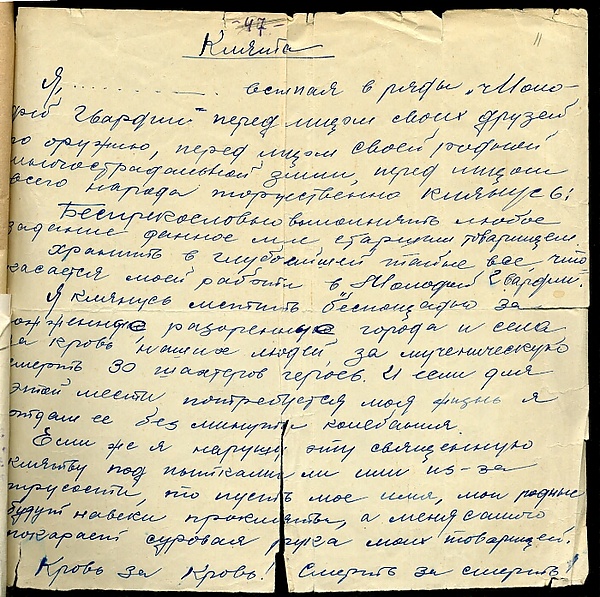 47
11
Клятва
Я, . . . . . . . . . вступая в ряды „Моло-
дой Гвардии" перед лицом своих друзей
по оружию, перед лицом своей родной
многострадальной земли, перед лицом
всего народа торжественно клянусь:
Беспрекословно выполнять любое
задание данное мне старшим товарищем
Хранить в глубочайшей тайне все, что
касается моей работы в „Молодой Гвардии".
Я клянусь мстить беспощадно за
сожженные разоренные города и села
за кровь наших людей, за мученическую
смерть 30 шахтеров героев. И если для
этой мести потребуется моя жизнь я
отдам ее без минуты колебания.
Если же я нарушу эту священную
клятву под пытками ли или из-за
трусости, то пусть мое имя, мои родные
будут навеки прокляты, а меня самого
покарает суровая рука моих товарищей.
Кровь за Кровь! Смерть за смерть!